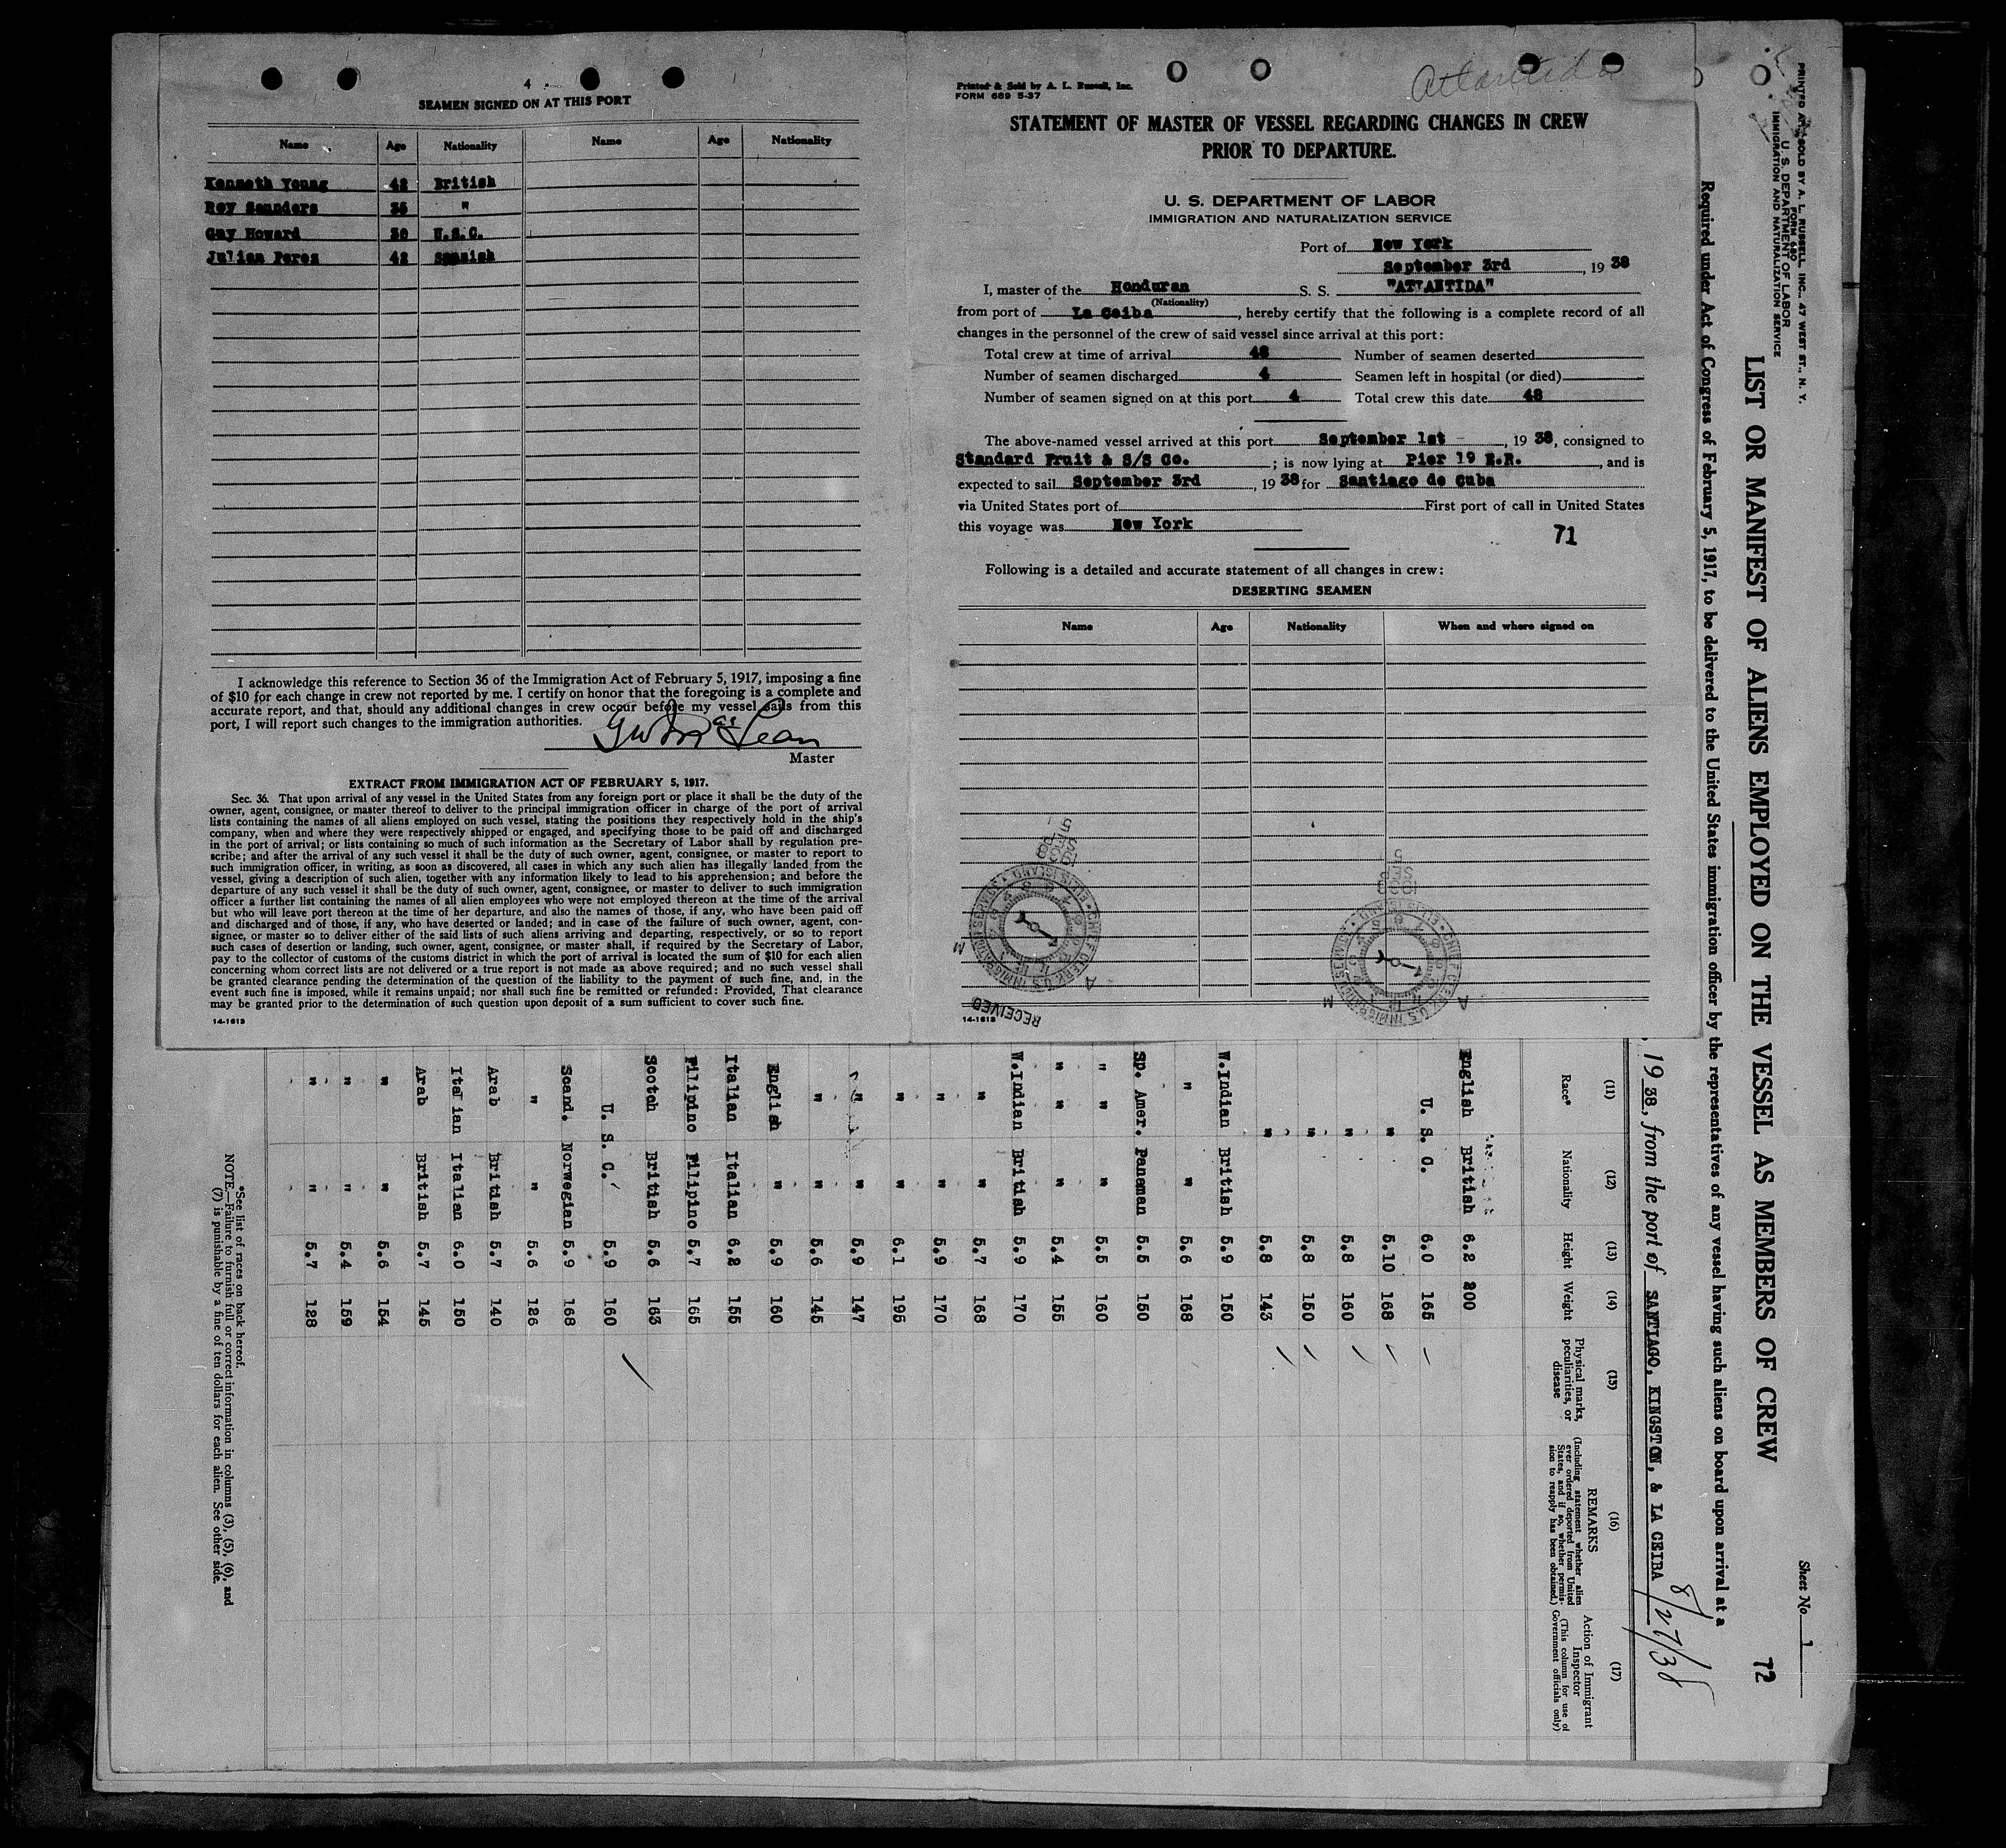 4
SEAMEN SIGNED ON AT THIS PORT
Name Age Nationality Name Age Nationality
Kenneth Young 42 British
Roy Saunders 35 "
Guy Howard 30 U.S.C.
Julian Perez 42 Spanish
I acknowledge this reference to Section 36 of the Immigration Act of February 5, 1917, imposing a fine
of $10 for each change in crew not reported by me. I certify on honor that the foregoing is a complete and
accurate report, and that, should any additional changes in crew occur before my vessel sails from this
port, I will report such changes to the immigration authorities.
Master
EXTRACT FROM IMMIGRATION ACT OF FEBRUARY 5, 1917.
Sec. 36. That upon arrival of any vessel in the United States from any foreign port or place it shall be the duty of the
owner, agent, consignee, or master thereof to deliver to the principal immigration officer in charge of the port of arrival
lists containing the names of all aliens employed on such vessel, stating the positions they respectively hold in the ship's
company, when and where they were respectively shipped or engaged, and specifying those to be paid off and discharged
in the port of arrival; or lists containing so much of such information as the Secretary of Labor shall by regulation pre-
scribe; and after the arrival of any such vessel it shall be the duty of such owner, agent, consignee, or master to report to
such immigration officer, in writing, as soon as discovered, all cases in which any such alien has illegally landed from the
vessel, giving a description of such alien, together with any information likely to lead to his apprehension; and before the
departure of any such vessel it shall be the duty of such owner, agent, consignee, or master to deliver to such immigration
officer a further list containing the names of all alien employees who were not employed thereon at the time of the arrival
but who will leave port thereon at the time of her departure, and also the names of those, if any, who have been paid off
and discharged and of those, if any, who have deserted or landed; and in case of the failure of such owner, agent, con-
signee, or master so to deliver either of the said lists of such aliens arriving and departing, respectively, or so to report
such cases of desertion or landing, such owner, agent, consignee, or master shall, if required by the Secretary of Labor,
pay to the collector of customs of the customs district in which the port of arrival is located the sum of $10 for each alien
concerning whom correct lists are not delivered or a true report is not made as above required; and no such vessel shall
be granted clearance pending the determination of the question of the liability to the payment of such fine, and, in the
event such fine is imposed, while it remains unpaid; nor shall such fine be remitted or refunded: Provided, That clearance
may be granted prior to the determination of such question upon deposit of a sum sufficient to cover such fine.
14-1613
Atlantida
Printed & Sold by A. L. Russell, Inc.
FORM 689 5-37
STATEMENT OF MASTER OF VESSEL REGARDING CHANGES IN CREW
PRIOR TO DEPARTURE.
U. S. DEPARTMENT OF LABOR
IMMIGRATION AND NATURALIZATION SERVICE
Port of New York
September 3rd, 1938
I, master of the Honduran S. S. "ATLANTIDA"
(Nationality)
from port of La Ceiba, hereby certify that the following is a complete record of all
changes in the personnel of the crew of said vessel since arrival at this port:
Total crew at time of arrival 48 Number of seamen deserted
Number of seamen discharged 4 Seamen left in hospital (or died)
Number of seamen signed on at this port 4 Total crew this date 48
The above-named vessel arrived at this port September 1st, 1938, consigned to
Standard Fruit & S/S Co.; is now lying at Pier 19 E.R., and is
expected to sail September 3rd, 1938 for Santiago de Cuba
via United States port of First port of call in United States
this voyage was New York
71
Following is a detailed and accurate statement of all changes in crew:
DESERTING SEAMEN
Name Age Nationality When and where signed on
RECEIVED
CHIEF CLERK U.S. IMMIGRATION SERVICE ELLIS ISLAND
1938 SEP 5
CHIEF CLERK U.S. IMMIGRATION SERVICE ELLIS ISLAND
1938 SEP 5
14-1613
PRINTED AND SOLD BY A. L. RUSSELL, INC., 47 WEST ST., N. Y.
FORM 680
U. S. DEPARTMENT OF LABOR
IMMIGRATION AND NATURALIZATION SERVICE
Sheet No. 1
LIST OR MANIFEST OF ALIENS EMPLOYED ON THE VESSEL AS MEMBERS OF CREW 72
Required under Act of Congress of February 5, 1917, to be delivered to the United States immigration officer by the representatives of any vessel having such aliens on board upon arrival at a
, 1938, from the port of SANTIAGO, KINGSTON, & LA CEIBA 8/27/38
(11) (12) (13) (14) (15) (16) (17)
Race* Nationality Height Weight Physical marks, peculiarities, or disease
REMARKS (Including statement whether alien ever ordered deported from United States, and if so, whether permission to reapply has been obtained.)
Action of Immigrant Inspector (This column for use of Government officials only)
English British 6.2 200
U. S. C. 6.0 165
" 5.10 168
" 5.8 160
" 5.8 150
" 5.8 143
W.Indian British 5.9 150
" " 5.6 168
Sp. Amer. Panaman 5.5 150
" " " 5.5 160
" " " 5.4 155
W.Indian British 5.9 170
" " 5.7 168
" " 5.9 170
" " 6.1 195
" " 5.9 147
" " 5.6 145
English " 5.9 160
Italian Italian 6.2 155
Filipino Filipino 5.7 165
Scotch British 5.6 163
U. S. C. 5.9 160
Scand. Norwegian 5.9 168
" " 5.6 126
Arab British 5.7 140
Italian Italian 6.0 150
Arab British 5.7 145
" " 5.6 154
" " 5.4 159
" " 5.7 128
*See list of races on back hereof.
NOTE.—Failure to furnish full or correct information in columns (3), (5), (6), and
(7) is punishable by a fine of ten dollars for each alien. See other side.